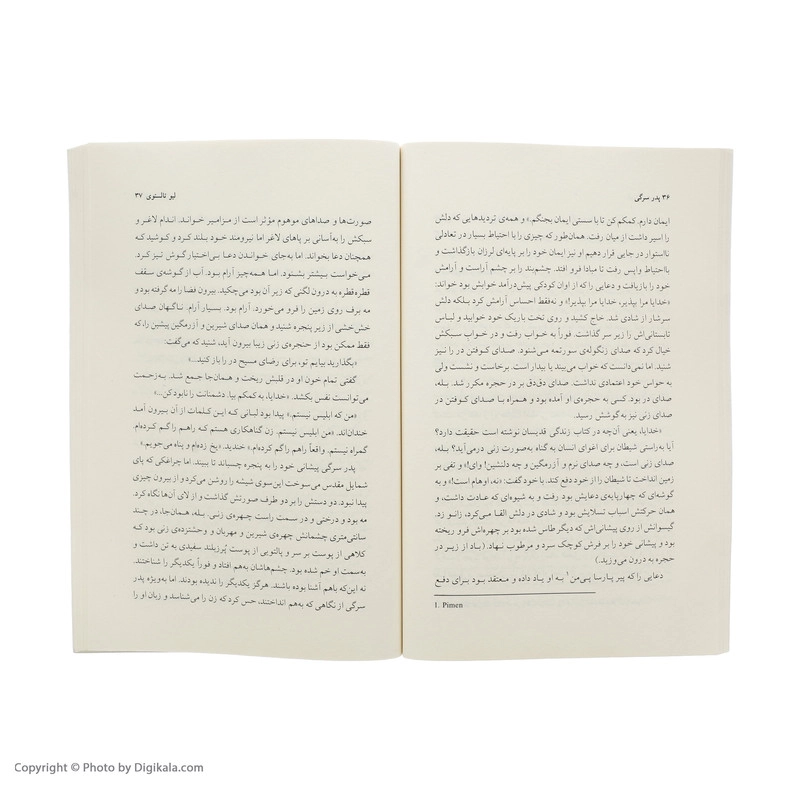 ۳۶ پدر سرگی
ایمان دارم. کمکم کن تا با سستی ایمان بجنگم.» و همه‌ی تردیدهایی که دلش
را اسیر داشت از میان رفت. همان‌طور که چیزی را با احتیاط بسیار در تعادلی
نااستوار در جایی قرار دهیم او نیز ایمان خود را بر پایه‌ای لرزان بازگذاشت و
بااحتیاط واپس رفت تا مبادا فرو افتد. چشم‌بند را بر چشم آراست و آرامش
خود را بازیافت و دعایی را که از اوان کودکی پیش‌درآمد خوابش بود خواند:
«خدایا مرا بپذیر، خدایا مرا بپذیر!» و نه‌فقط احساس آرامش کرد بلکه دلش
سرشار از شادی شد. حاج کشید و روی تخت باریک خود خوابید و لباس
تابستانی‌اش را زیر سر گذاشت. فوراً به خواب رفت و در خواب سبکش
خیال کرد که صدای زنگوله‌ی سورتمه می‌شنود. صدای کوفتن در را نیز
شنید. اما نمی‌دانست که خواب می‌بیند یا بیدار است. برخاست و نشست ولی
به حواس خود اعتمادی نداشت. صدای دق‌دق بر در حجره مکرر شد. بله،
صدای در بود. کسی به حجره‌ی او آمده بود و همراه با صدای کوفتن در
صدای زنی نیز به گوشش رسید.
«خدایا، یعنی آن‌چه در کتاب زندگی قدیسان نوشته است حقیقت دارد؟
آیا به‌راستی شیطان برای اغوای انسان به گناه به‌صورت زنی درمی‌آید؟ بله،
صدای زنی است، و چه صدای نرم و آزرمگین و چه دلنشین! وای!» و تفی بر
زمین انداخت تا شیطان را از خود دفع کند. با خود گفت: «نه، اوهام است!» و به
گوشه‌ای که چهارپایه‌ی دعایش بود رفت و به شیوه‌ای که عادت داشت، و
همان حرکتش اسباب تسلایش بود و شادی در دلش القا می‌کرد، زانو زد.
گیسوانش از روی پیشانی‌اش که دیگر طاس شده بود بر چهره‌اش فرو ریخته
بود و پیشانی خود را بر فرش کوچک سرد و مرطوب نهاد. (باد از زیر در
حجره به درون می‌وزید.)
دعایی را که پیر پارسا پی‌من۱ به او یاد داده و معتقد بود برای دفع
1. Pimen
لیو تالستوی ۳۷
صورت‌ها و صداهای موهوم مؤثر است از مزامیر خواند. اندام لاغر و
سبکش را به‌آسانی بر پاهای لاغر اما نیرومند خود بلند کرد و کوشید که
همچنان دعا بخواند. اما به‌جای خواندن دعا بی‌اختیار گوش تیز کرد.
می‌خواست بیشتر بشنود. اما همه‌چیز آرام بود. آب از گوشه‌ی سقف
قطره‌قطره به درون لگنی که زیر آن بود می‌چکید. بیرون فضا را مه گرفته بود و
مه برف روی زمین را فرو می‌خورد. آرام بود. بسیار آرام. ناگهان صدای
خش‌خشی از زیر پنجره شنید و همان صدای شیرین و آزرمگین پیشین را، که
فقط ممکن بود از حنجره‌ی زنی زیبا بیرون آید، شنید که می‌گفت:
«بگذارید بیایم تو، برای رضای مسیح در را باز کنید...»
گفتی تمام خون او در قلبش ریخت و همان‌جا جمع شد. به‌زحمت
می‌توانست نفس بکشد. «خدایا، به کمکم بیا. دشمنانت را نابود کن...»
«من که ابلیس نیستم.» پیدا بود لبانی که این کلمات از آن بیرون آمد
خندان‌اند. «من ابلیس نیستم. زن گناهکاری هستم که راهم را گم کرده‌ام.
گمراه نیستم. واقعاً راهم را گم کرده‌ام.» خندید. «یخ زده‌ام و پناه می‌جویم.»
پدر سرگی پیشانی خود را به پنجره چسباند تا ببیند. اما چراغکی که پای
شمایل مقدس می‌سوخت این‌سوی شیشه را روشن می‌کرد و از بیرون چیزی
پیدا نبود. دو دستش را بر دو طرف صورتش گذاشت و از لای آن‌ها نگاه کرد.
مه بود و درختی و در سمت راست چهره‌ی زنی. بله، همان‌جا، در چند
سانتی‌متری چشمانش چهره‌ی شیرین و مهربان و وحشتزده‌ی زنی بود که
کلاهی از پوست بر سر و پالتویی از پوست پُرزبلند سفیدی به تن داشت و
به‌سمت او خم شده بود. چشم‌هاشان به‌هم افتاد و فوراً یکدیگر را شناختند.
نه این‌که باهم آشنا بوده باشند. هرگز یکدیگر را ندیده بودند. اما به‌ویژه پدر
سرگی از نگاهی که به‌هم انداختند، حس کرد که زن را می‌شناسد و زبان او را
Copyright © Photo by Digikala.com